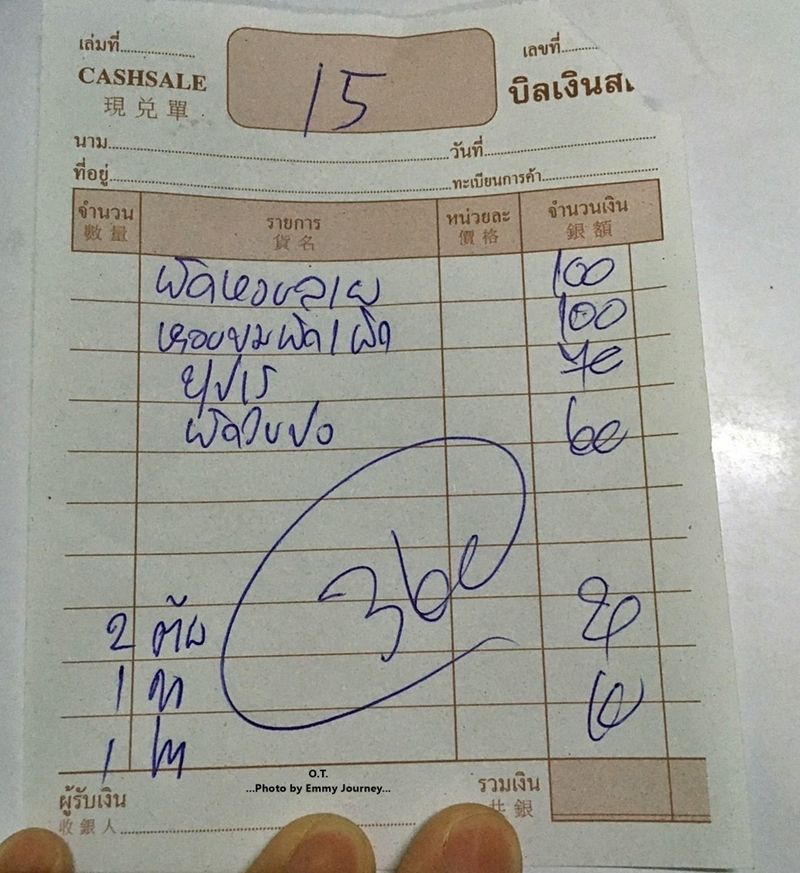 เล่มที่ 15 เลขที่
CASHSALE บิลเงินส
現兌單
นาม วันที่
ที่อยู่ ทะเบียนการค้า
จำนวน รายการ หน่วยละ จำนวนเงิน
數量 貨名 價格 銀額
ผัดหอยลาย 100
หอยขม ผัดเผ็ด 100
70
ผัดวุ้น 60
360
2 ต้ม 20
1
1
O.T.
...Photo by Emmy Journey...
ผู้รับเงิน รวมเงิน
收銀人 共銀